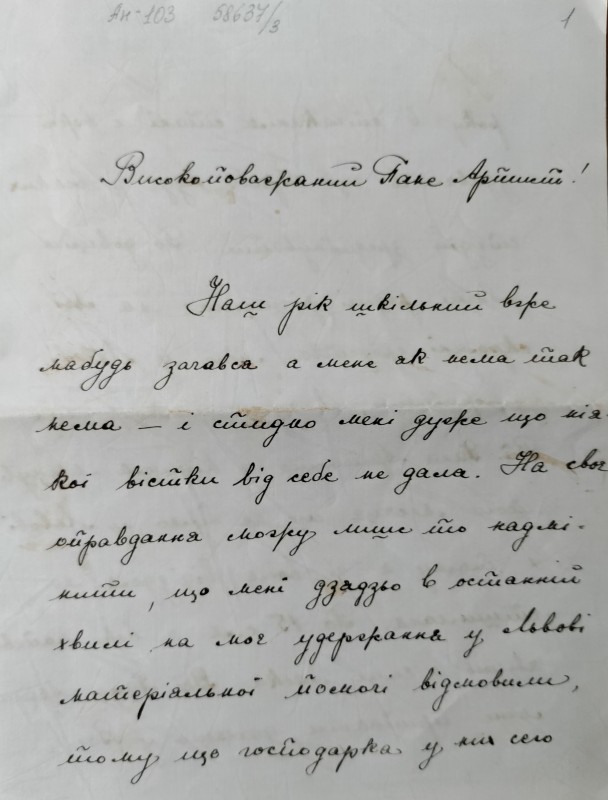 Ан-103 58637/3
1
Високоповажаний Пане Артист!
Наш рік шкільний вже
мабудь зачався а мене як нема так
нема — і стидно мені дуже що нія-
кої вістки від себе не дала. На своє
оправдання можу лише то надмі-
нити, що мені дзядзьо в останній
хвилі на моє удержання у Львові
матеріальної помочі відмовили,
тому що господарка у них сего